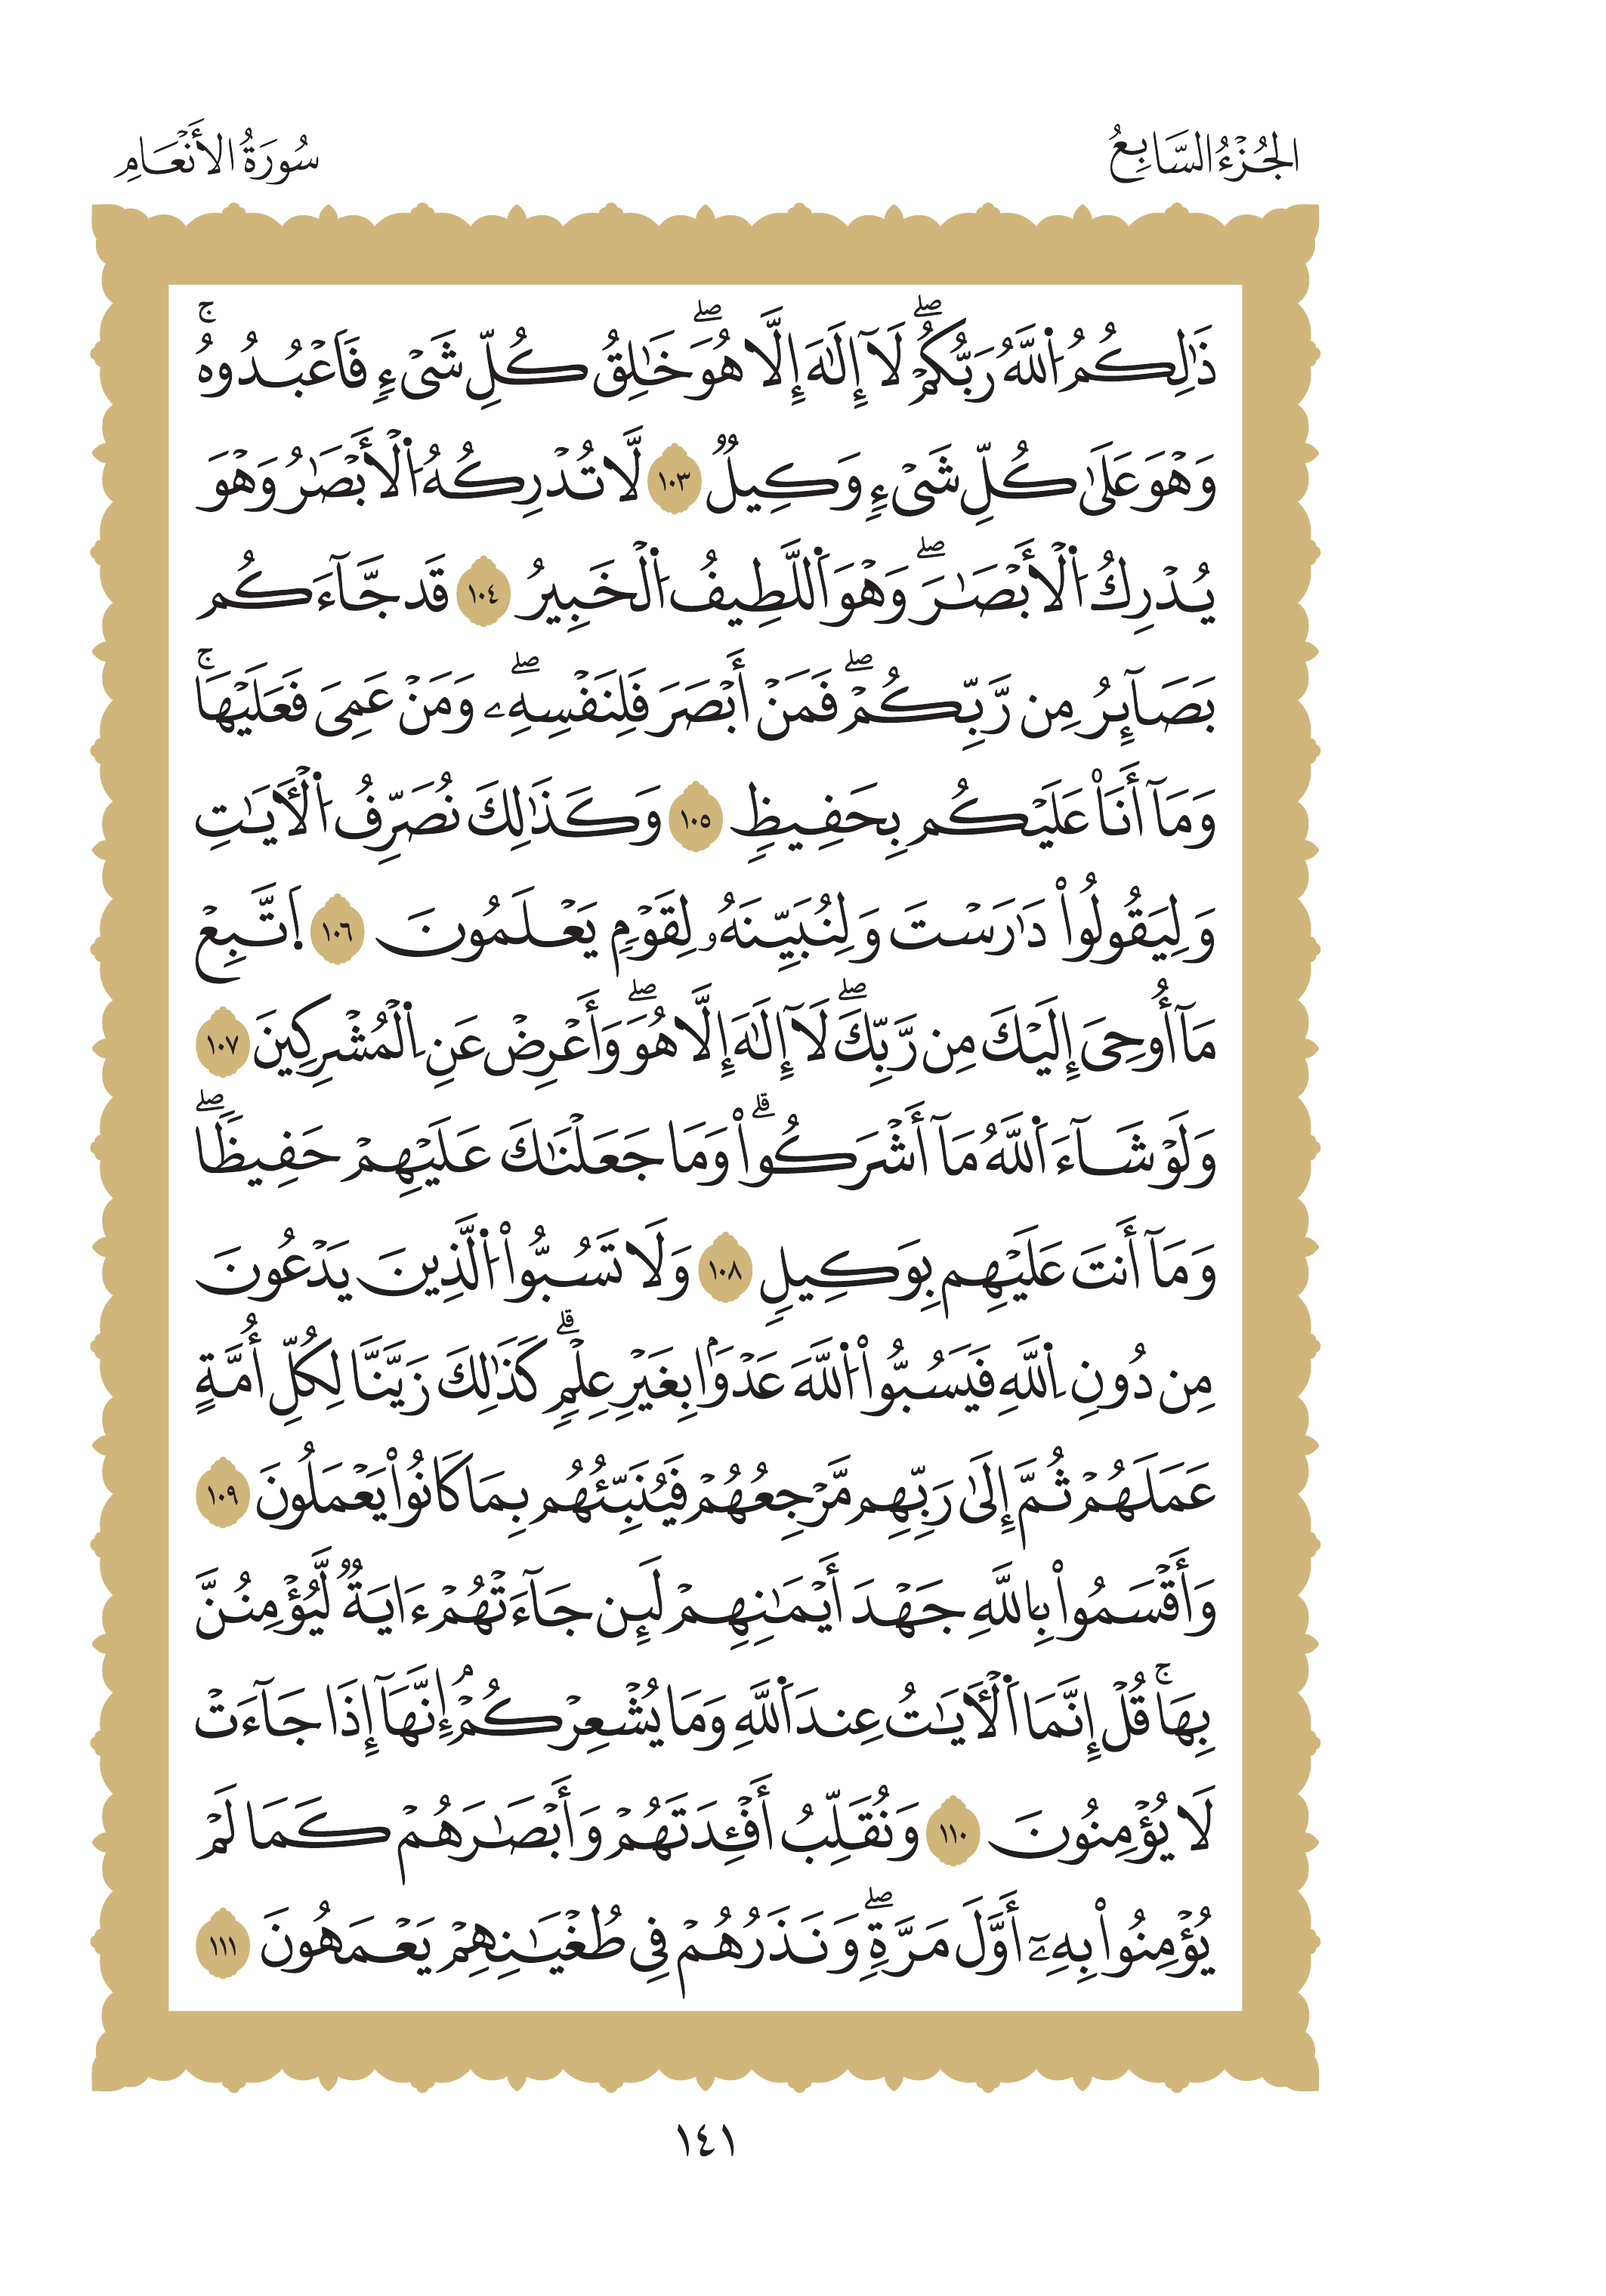 الجُزْءُ السَّابِعُ
سُورَةُ الأَنْعَامِ
ذَٰلِكُمُ اُ۬للَّهُ رَبُّكُمْۖ لَآ إِلَٰهَ إِلَّا هُوَۖ خَٰلِقُ كُلِّ شَىْءٍ فَاَعْبُدُوهُۚ
وَهْوَ عَلَىٰ كُلِّ شَىْءٍ وَكِيلٌ ١٠٣ لَّا تُدْرِكُهُ اُ۬لْأَبْصَٰرُ وَهْوَ
يُدْرِكُ اُ۬لْأَبْصَٰرَۖ وَهْوَ اَ۬للَّطِيفُ اُ۬لْخَبِيرُ ١٠٤ قَد جَّآءَكُم
بَصَآئِرُ مِن رَّبِّكُمْۖ فَمَنْ أَبْصَرَ فَلِنَفْسِهِۦۖ وَمَنْ عَمِىَ فَعَلَيْهَاۚ
وَمَآ أَنَا۠ عَلَيْكُم بِحَفِيظٍ ١٠٥ وَكَذَٰلِكَ نُصَرِّفُ اُ۬لْأٓيَٰتِ
وَلِيَقُولُواْ دَٰرَسْتَ وَلِنُبَيِّنَهُۥ لِقَوْمٍ يَعْلَمُونَ ١٠٦ اَ۪تَّبِعْ
مَآ أُوحِىَ إِلَيْكَ مِن رَّبِّكَۖ لَآ إِلَٰهَ إِلَّا هُوَۖ وَأَعْرِضْ عَنِ اِ۬لْمُشْرِكِينَ ١٠٧
وَلَوْ شَآءَ اَ۬للَّهُ مَآ أَشْرَكُواْۗ وَمَا جَعَلْنَٰكَ عَلَيْهِمْ حَفِيظًاۖ
وَمَآ أَنتَ عَلَيْهِم بِوَكِيلٍ ١٠٨ وَلَا تَسُبُّواْ اُ۬لَّذِينَ يَدْعُونَ
مِن دُونِ اِ۬للَّهِ فَيَسُبُّواْ اُ۬للَّهَ عَدْوَۢا بِغَيْرِ عِلْمٍۗ كَذَٰلِكَ زَيَّنَّا لِكُلِّ أُمَّةٍ
عَمَلَهُمْ ثُمَّ إِلَىٰ رَبِّهِم مَّرْجِعُهُمْ فَيُنَبِّئُهُم بِمَا كَانُواْ يَعْمَلُونَ ١٠٩
وَأَقْسَمُواْ بِاللَّهِ جَهْدَ أَيْمَٰنِهِمْ لَئِن جَآءَتْهُمْ ءَايَةٌ لَّيُؤْمِنُنَّ
بِهَاۚ قُلْ إِنَّمَا اَ۬لْأٓيَٰتُ عِندَ اَ۬للَّهِ وَمَا يُشْعِرْكُمُۥٓ إِنَّهَآ إِذَا جَآءَتْ
لَا يُؤْمِنُونَ ١١٠ وَنُقَلِّبُ أَفْـِٔدَتَهُمْ وَأَبْصَٰرَهُمْ كَمَا لَمْ
يُؤْمِنُواْ بِهِۦٓ أَوَّلَ مَرَّةٍۖ وَنَذَرُهُمْ فِى طُغْيَٰنِهِمْ يَعْمَهُونَ ١١١
١٤١